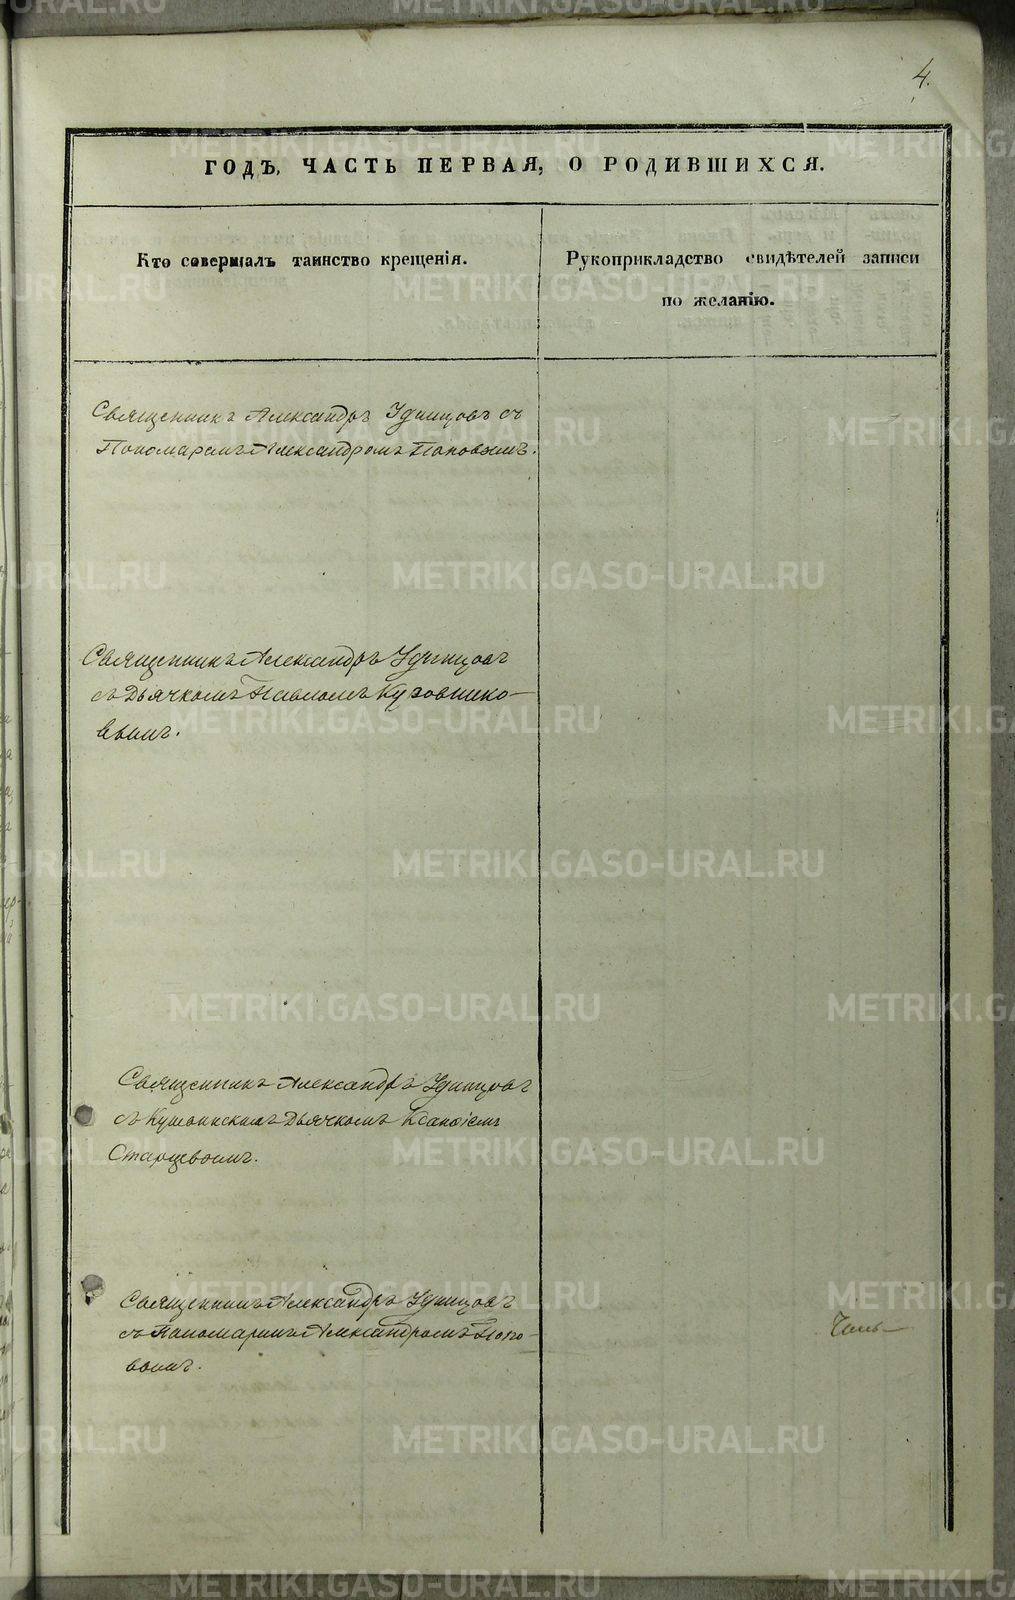 4.
ГОДЪ, ЧАСТЬ ПЕРВАЯ, О РОДИВШИХСЯ.
Кто совершалъ таинство крещенія.
Рукоприкладство свидѣтелей записи
по желанію.
Священникъ Александръ Удинцовъ съ
Пономаремъ Александромъ Поповымъ.
Священникъ Александръ Удинцовъ
съ Дьячкомъ Павломъ Кузовнико-
вымъ.
Священникъ Александръ Удинцовъ
съ Кушвинскимъ Дьячкомъ
Старцевымъ.
Священникъ Александръ Удинцовъ
съ Пономаремъ Александромъ Попо-
вымъ.
METRIKI.GASO-URAL.RU